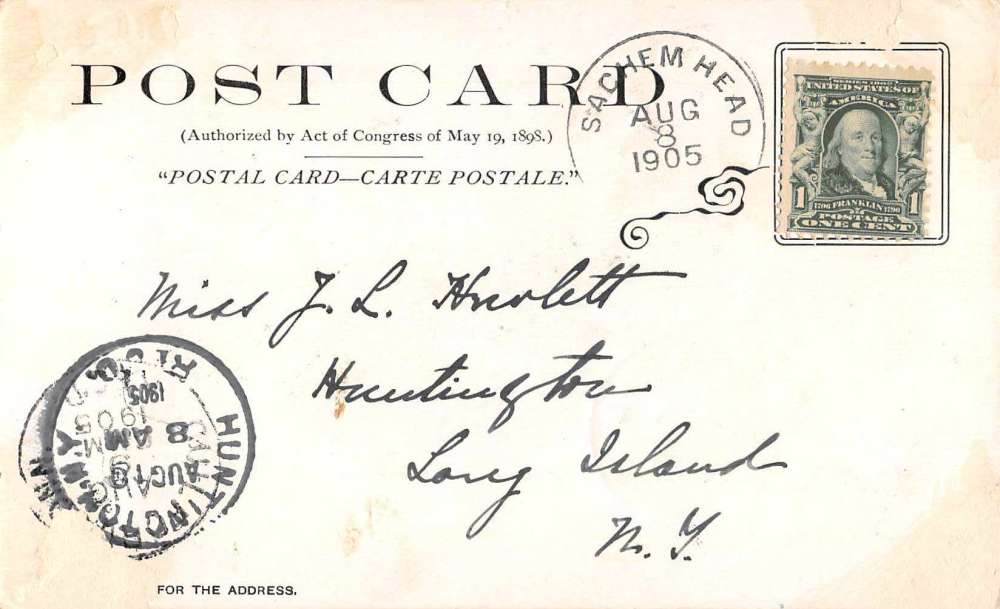 POST CARD
(Authorized by Act of Congress of May 19, 1898.)
"POSTAL CARD—CARTE POSTALE."
SACHEM HEAD
AUG
8
1905
SERIES 1902
UNITED STATES OF
AMERICA
1 1
1706 FRANKLIN 1790
POSTAGE
ONE CENT
Miss J. L. Hewlett
Huntington
Long Island
N. Y.
HUNTINGTON, N.Y.
REC'D.
AUG 9
8 AM
1905
FOR THE ADDRESS.